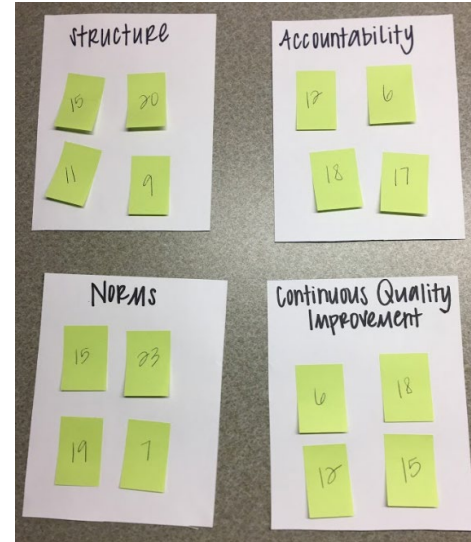 Structure
15 20
11 9
Accountability
12 6
18 17
Norms
15 23
19 7
Continuous Quality
Improvement
6 18
12 15